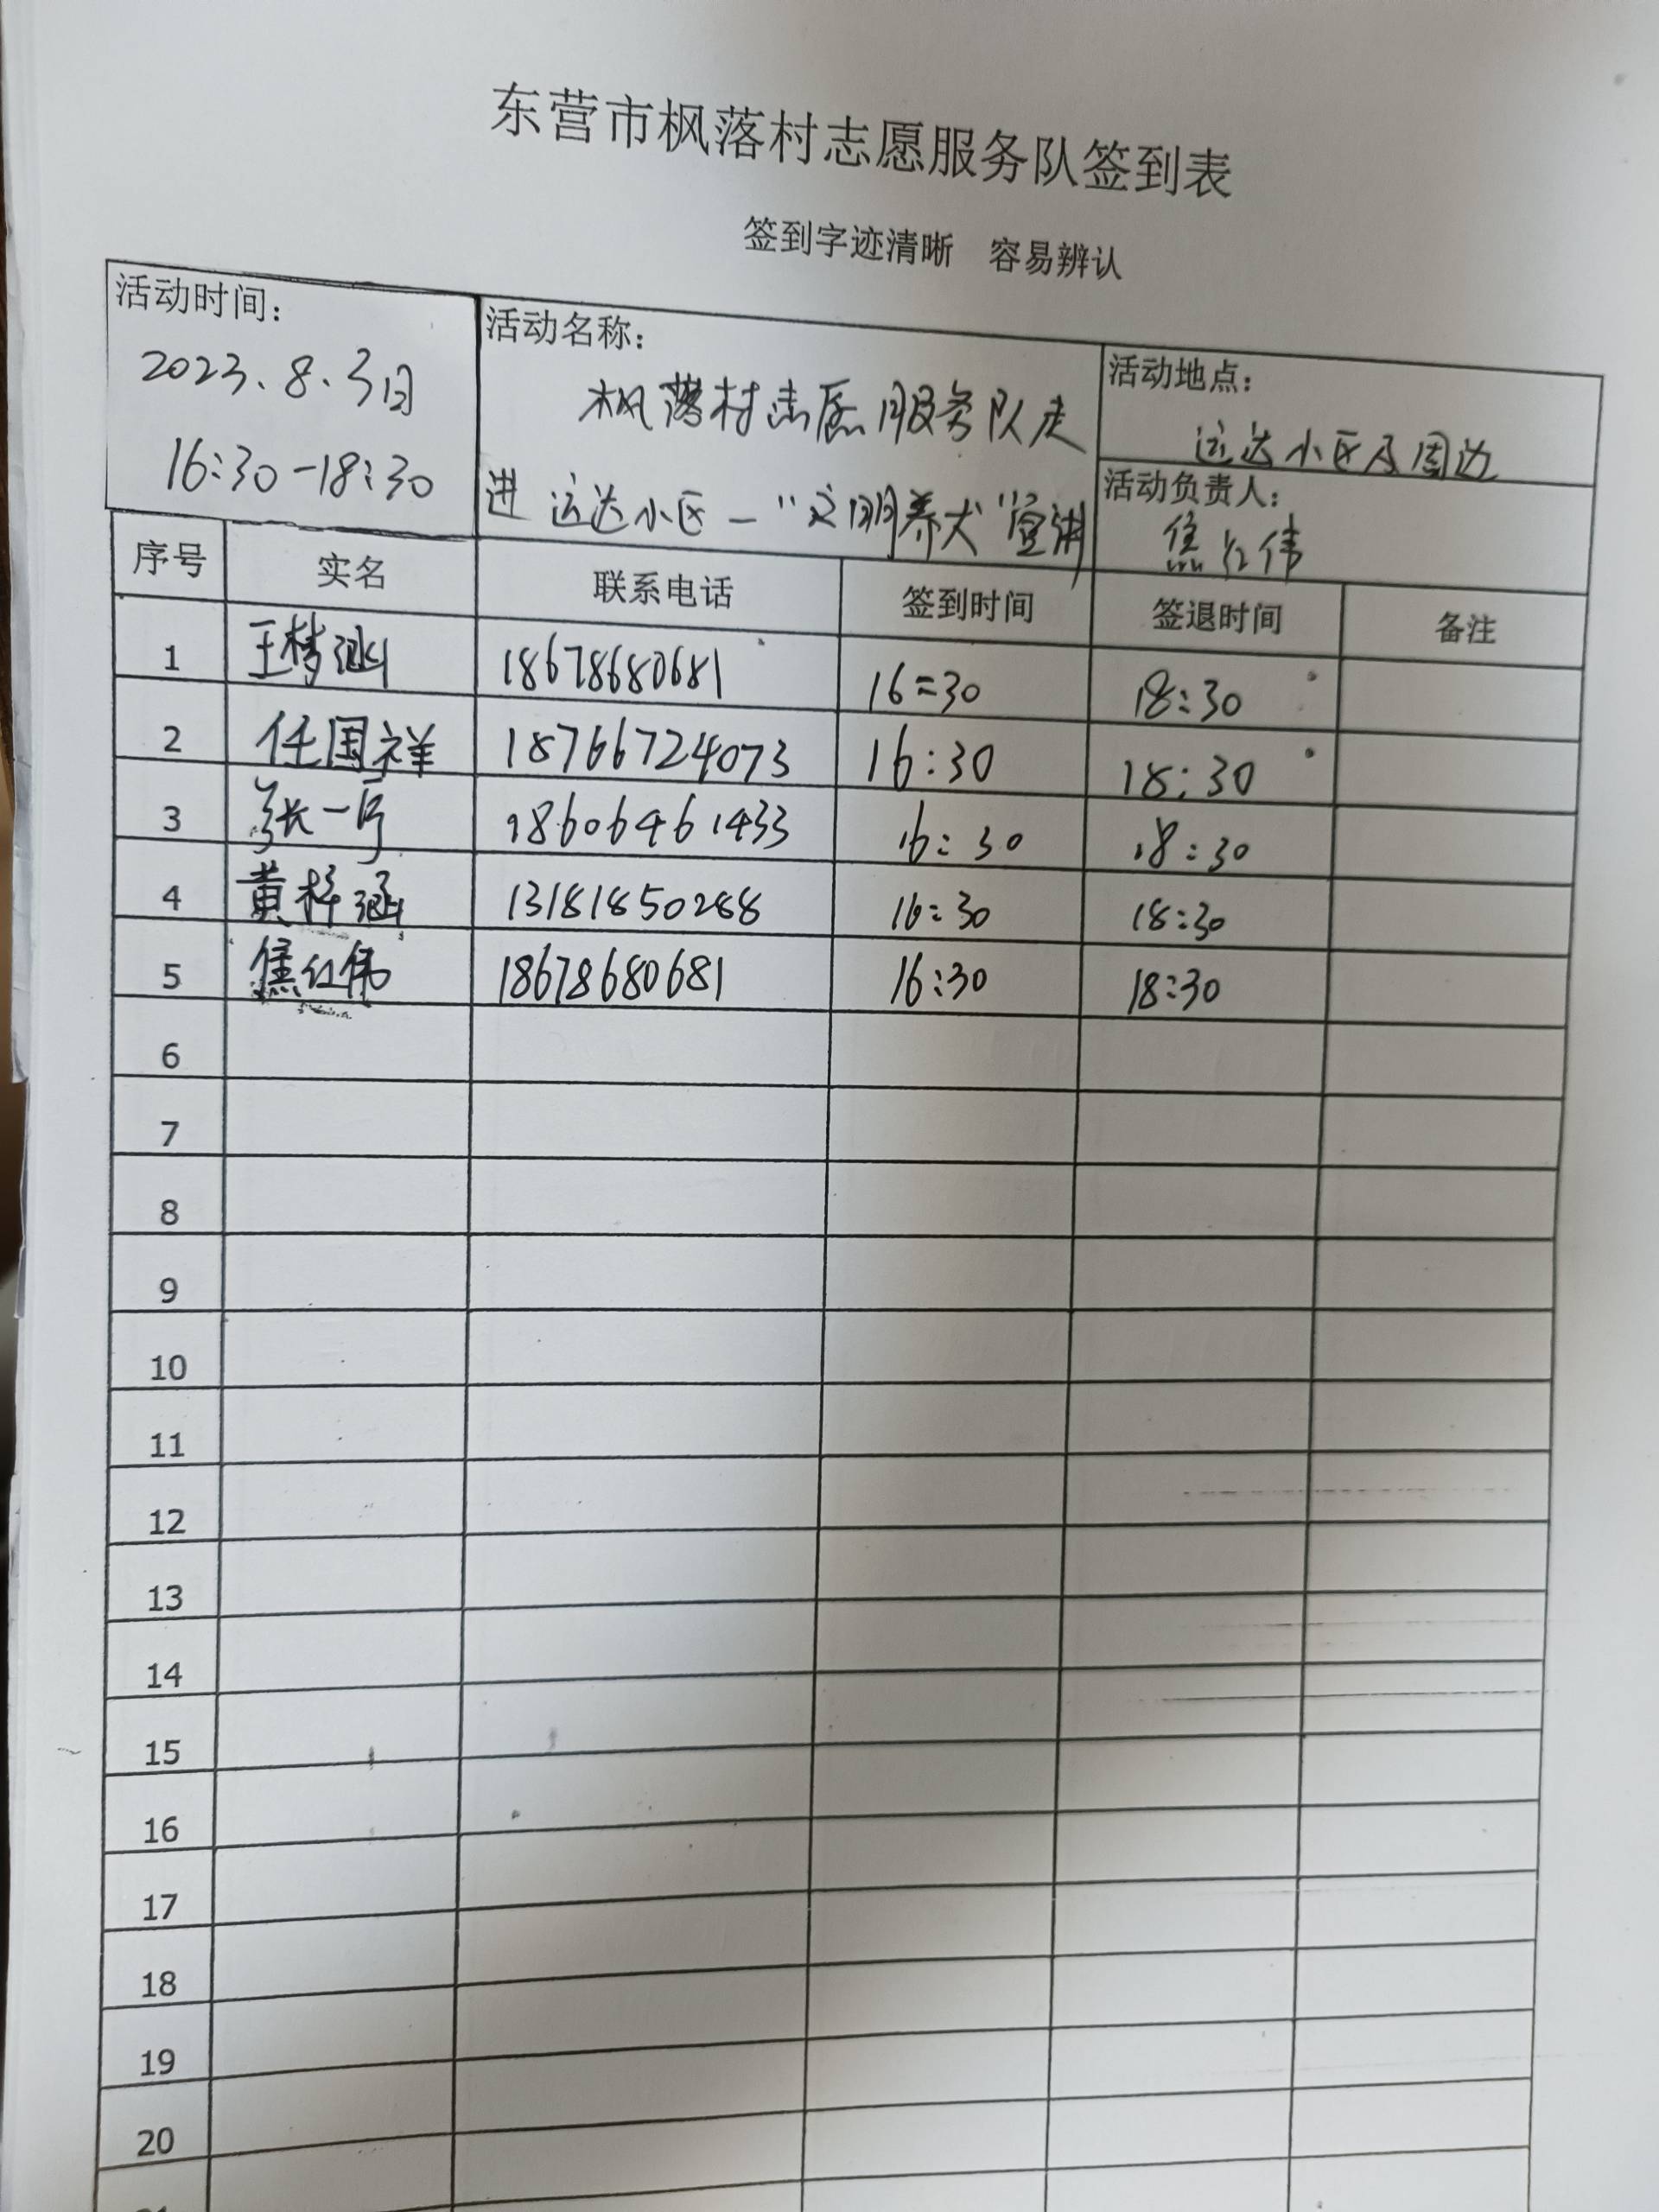 东营市枫落村志愿服务队签到表
签到字迹清晰 容易辨认
活动时间：
2023、8、3日
16:30-18:30
活动名称：
枫落村志愿服务队走
进远达小区—“文明养犬”宣讲
活动地点：
远达小区及周边
活动负责人：
焦红伟
序号 实名 联系电话 签到时间 签退时间 备注
1 王梦涵 18678680681 16:30 18:30
2 任国祥 18766724073 16:30 18:30
3 张一 18606461433 16:30 18:30
4 黄梓涵 13181850288 16:30 18:30
5 焦红伟 18678680681 16:30 18:30
6
7
8
9
10
11
12
13
14
15
16
17
18
19
20